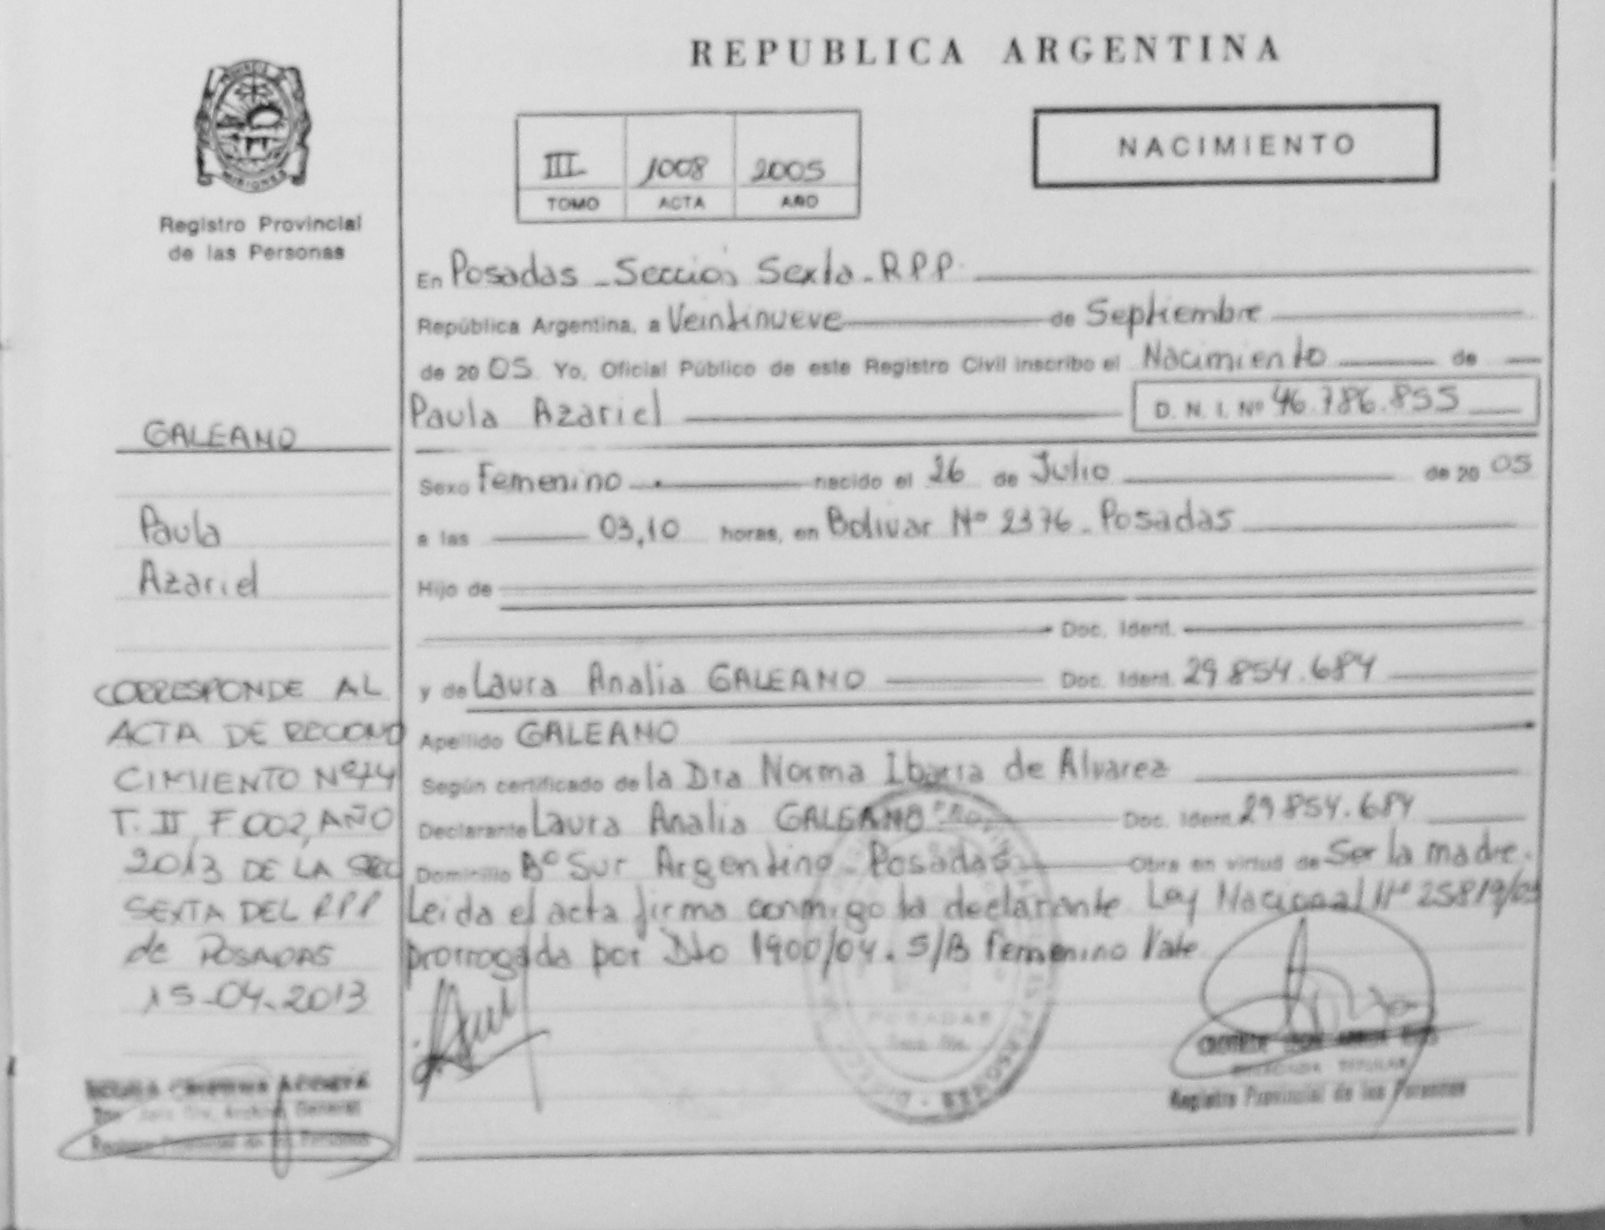 REPUBLICA ARGENTINA
PROVINCIA DE
MISIONES
Registro Provincial
de las Personas
III 1008 2005
TOMO ACTA AÑO
NACIMIENTO
En Posadas - Sección Sexta - RPP.
República Argentina, a Veintinueve de Septiembre
de 2005. Yo, Oficial Público de este Registro Civil inscribo el Nacimiento de
Paula Azariel D. N. I. Nº 46.786.855
Sexo Femenino nacido el 26 de Julio de 2005
a las 03,10 horas, en Bolivar Nº 2376 - Posadas
Hijo de
Doc. Ident.
y de Laura Analia GALEANO Doc. Ident. 29.854.684
Apellido GALEANO
Según certificado de la Dra Norma Ibarra de Alvarez
Declarante Laura Analia GALEANO Doc. Ident. 29.854.684
Domicilio Bº Sur Argentino - Posadas Obra en virtud de Ser la madre.
Leida el acta firma conmigo la declarante Ley Nacional Nº 25819/03
prorrogada por Dto 1900/04. S/B Femenino Vale
POSADAS
Registro Provincial de las Personas
GALEANO
Paula
Azariel
CORRESPONDE AL
ACTA DE RECONO
CIMIENTO Nº 74
T. II F 002, AÑO
2013 DE LA SEC
SEXTA DEL RPP
de POSADAS
15-04-2013
ACOSTA
Archivo General
Registro Provincial de las Personas